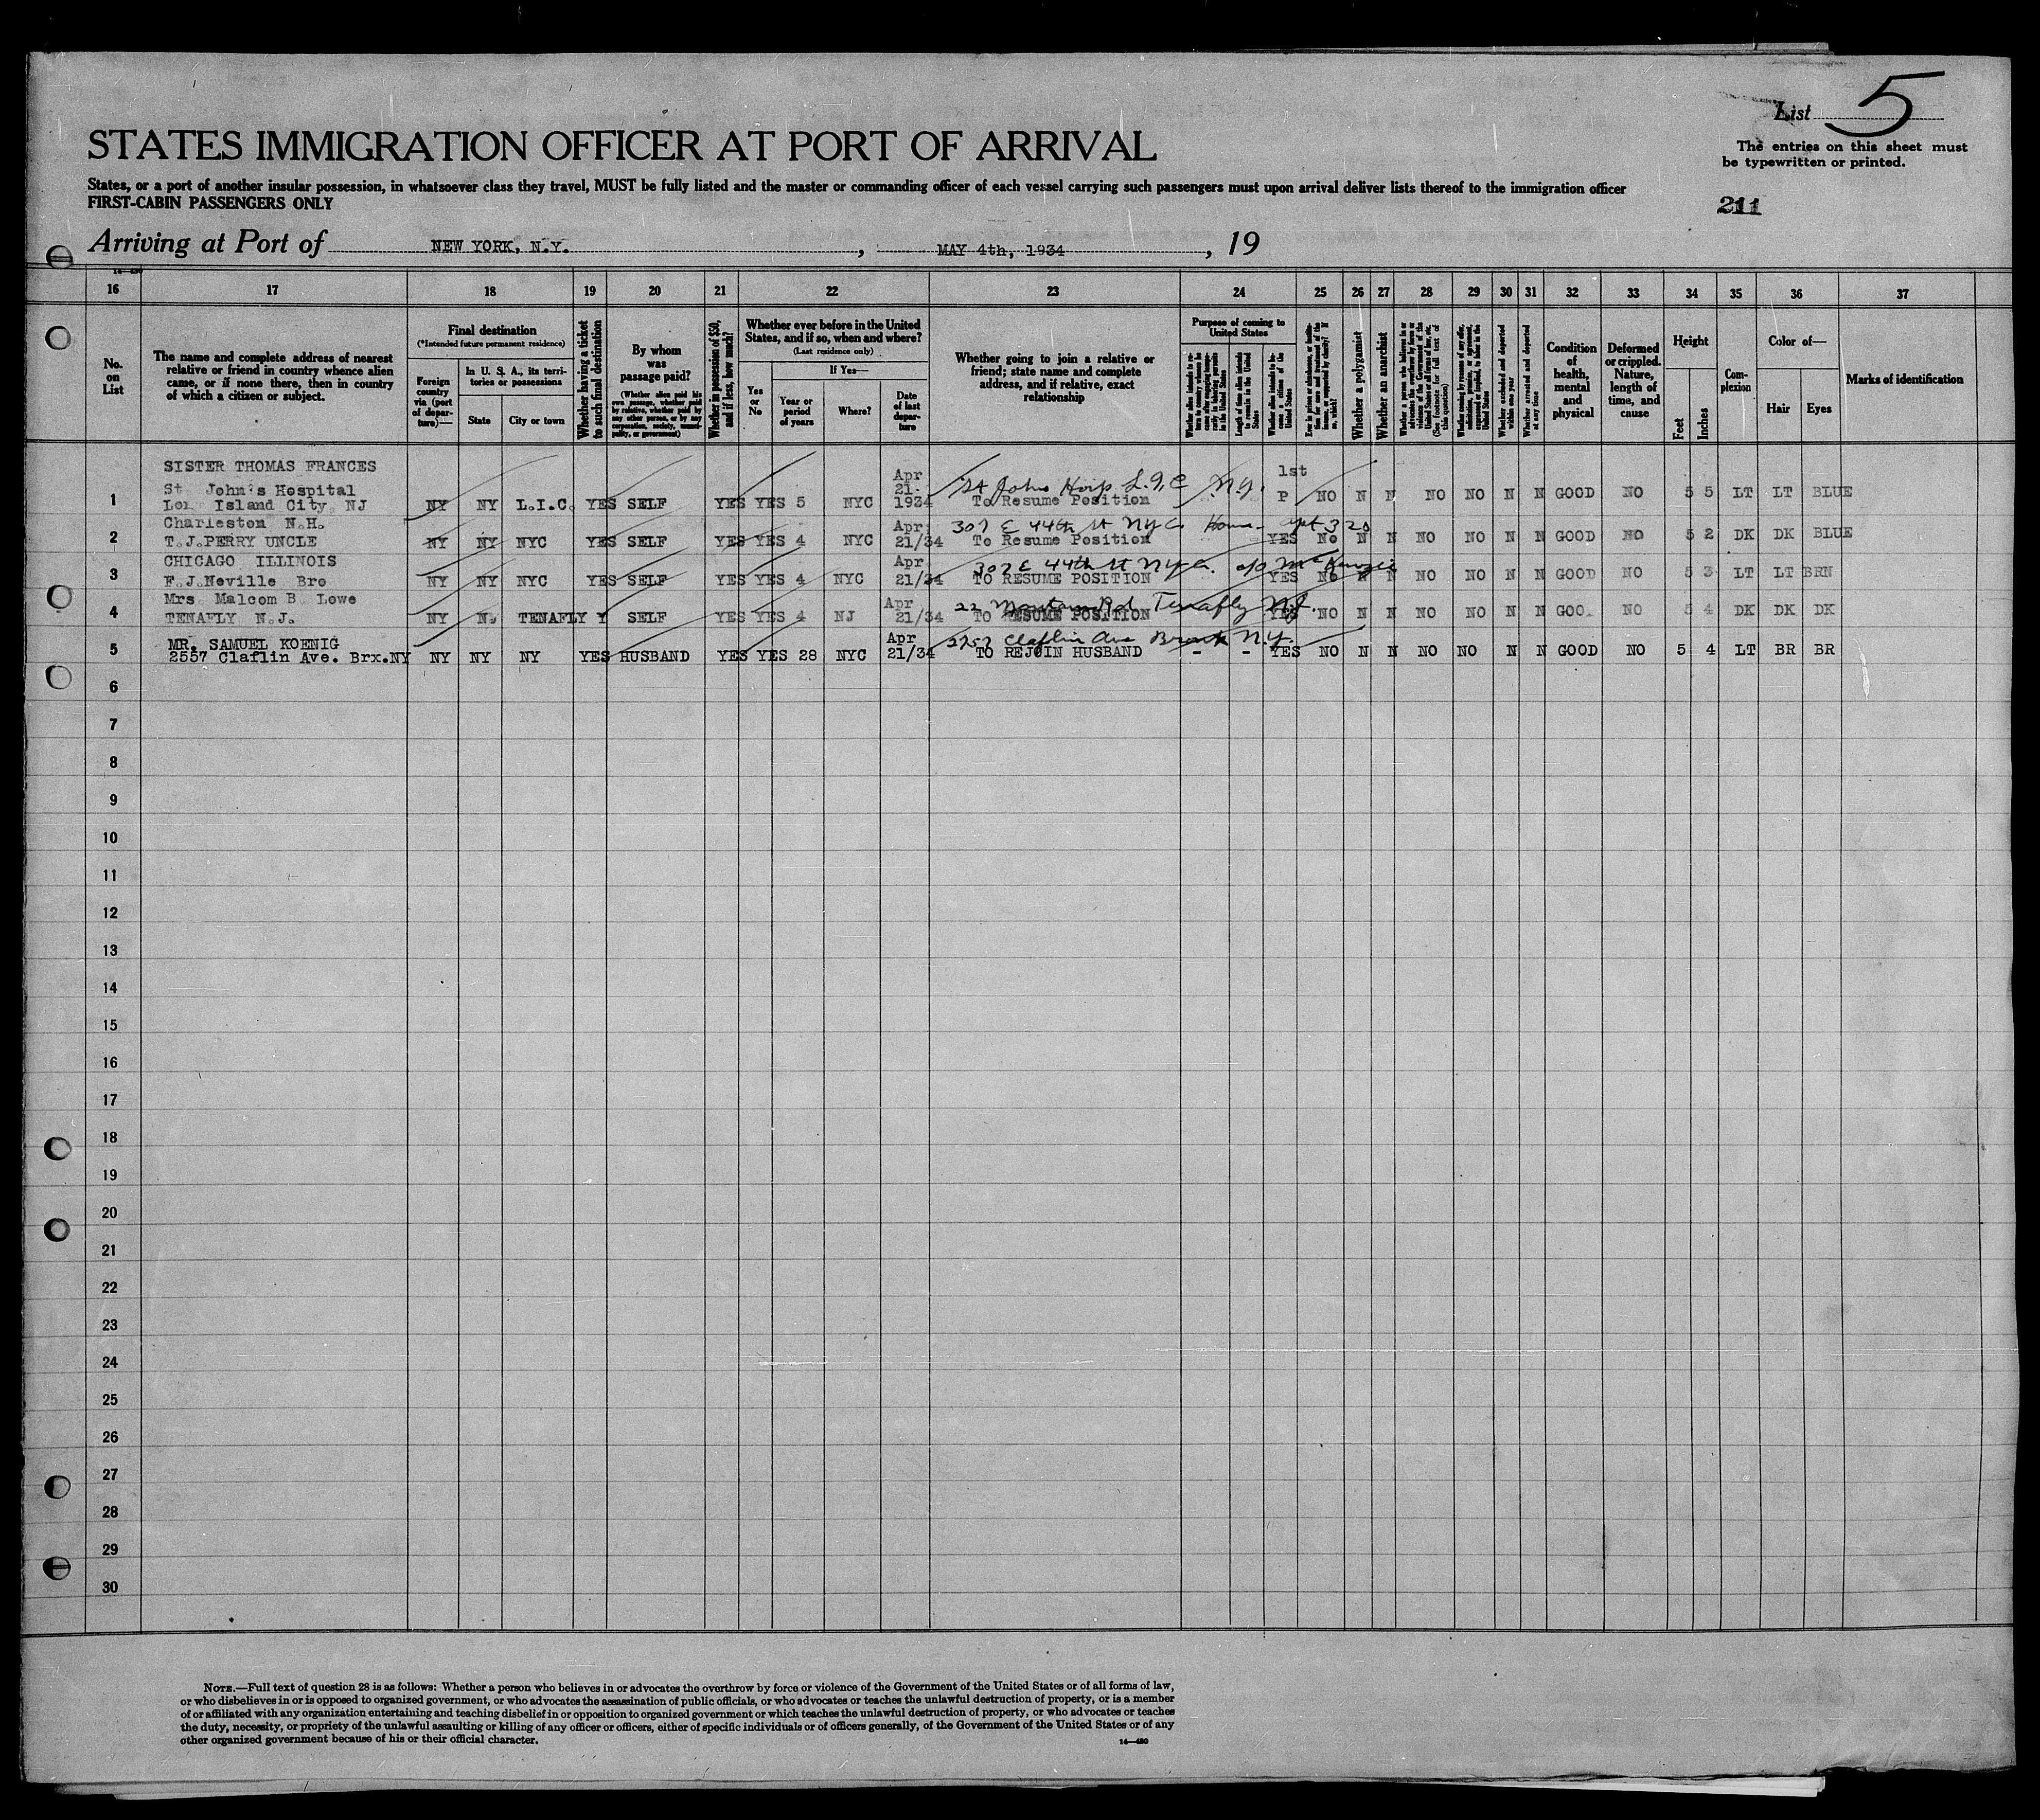 List 5
STATES IMMIGRATION OFFICER AT PORT OF ARRIVAL
The entries on this sheet must
be typewritten or printed.
States, or a port of another insular possession, in whatsoever class they travel, MUST be fully listed and the master or commanding officer of each vessel carrying such passengers must upon arrival deliver lists thereof to the immigration officer
FIRST-CABIN PASSENGERS ONLY
211
Arriving at Port of NEW YORK, N.Y. , MAY 4th, 1934 , 19
16 17 18 19 20 21 22 23 24 25 26 27 28 29 30 31 32 33 34 35 36 37
No.
on
List
The name and complete address of nearest
relative or friend in country whence alien
came, or if none there, then in country
of which a citizen or subject.
Final destination
(*Intended future permanent residence)
Foreign
country
via (port
of depar-
ture)—
In U. S. A., its terri-
tories or possessions
State
City or town
Whether having a ticket
to such final destination
By whom
was
passage paid?
(Whether alien paid his
own passage, whether paid
by relative, whether paid by
any other person, or by any
corporation, society, munici-
pality, or government)
Whether in possession of $50,
and if less, how much?
Whether ever before in the United
States, and if so, when and where?
(Last residence only)
Yes
or
No
If Yes—
Year or
period
of years
Where?
Date
of last
depar-
ture
Whether going to join a relative or
friend; state name and complete
address, and if relative, exact
relationship
Purpose of coming to
United States
Length of time alien intends
to remain in the United
States
Whether alien intends to be-
come a citizen of the
United States
Whether a polygamist
Whether an anarchist
Whether excluded and deported
within one year
Whether arrested and deported
at any time
Condition
of
health,
mental
and
physical
Deformed
or crippled.
Nature,
length of
time, and
cause
Height
Feet
Inches
Com-
plexion
Color of—
Hair
Eyes
Marks of identification
SISTER THOMAS FRANCES
St John's Hospital
1 Island City NJ NY NY L.I.C. YES SELF YES YES 5 NYC Apr 21. 1934 St Johns Hosp L.I.C N.Y. To Resume Position 1st P NO N N NO NO N N GOOD NO 5 5 LT LT BLUE
Charleston N.H.
2 T.J.PERRY UNCLE NY NY NYC YES SELF YES YES 4 NYC Apr 21/34 307 E 44th St NYC. To Resume Position YES NO N N NO NO N N GOOD NO 5 2 DK DK BLUE
CHICAGO ILLINOIS
3 F.J.Neville Bro NY NY NYC YES SELF YES YES 4 NYC Apr 21/34 307 E 44th St NYC. c/o McKenzie TO RESUME POSITION YES NO N N NO NO N N GOOD NO 5 3 LT LT BRN
Mrs Malcom B Lowe
4 TENAFLY N.J. NY N. TENAFLY Y SELF YES YES 4 NJ Apr 21/34 22 Rd Tenafly N.J. TO RESUME POSITION YES NO N N NO NO N N GOO. NO 5 4 DK DK DK
MR. SAMUEL KOENIG
5 2557 Claflin Ave. Brx.NY NY NY NY YES HUSBAND YES YES 28 NYC Apr 21/34 Claflin Ave Bronx N.Y. TO REJOIN HUSBAND - - YES NO N N NO NO N N GOOD NO 5 4 LT BR BR
6
7
8
9
10
11
12
13
14
15
16
17
18
19
20
21
22
23
24
25
26
27
28
29
30
NOTE.—Full text of question 28 is as follows: Whether a person who believes in or advocates the overthrow by force or violence of the Government of the United States or of all forms of law,
or who disbelieves in or is opposed to organized government, or who advocates the assassination of public officials, or who advocates or teaches the unlawful destruction of property, or is a member
of or affiliated with any organization entertaining and teaching disbelief in or opposition to organized government or which teaches the unlawful destruction of property, or who advocates or teaches
the duty, necessity, or propriety of the unlawful assaulting or killing of any officer or officers, either of specific individuals or of officers generally, of the Government of the United States or of any
other organized government because of his or their official character.
14—480